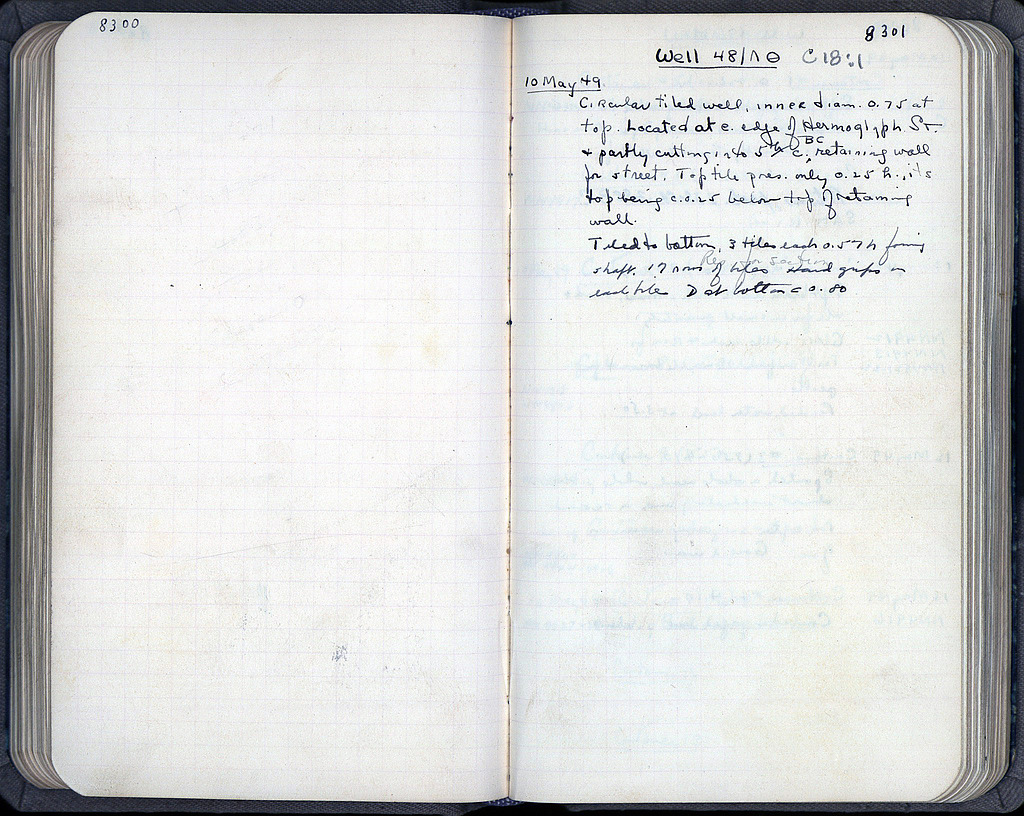 8300
8301
Well 48/ΛΘ C 18:1
10 May 49
Circular tiled well, inner diam. 0.75 at
top. Located at e. edge of Hermoglyph St.
+ partly cutting into 5th c. BC retaining wall
for street. Top tile pres. only 0.25 h., its
top being c. 0.25 below top of retaining
wall.
Tiled to bottom, 3 tiles each 0.57 h forming
shaft. 17 rows of tiles Hand grips in
each tile D at bottom c 0.80